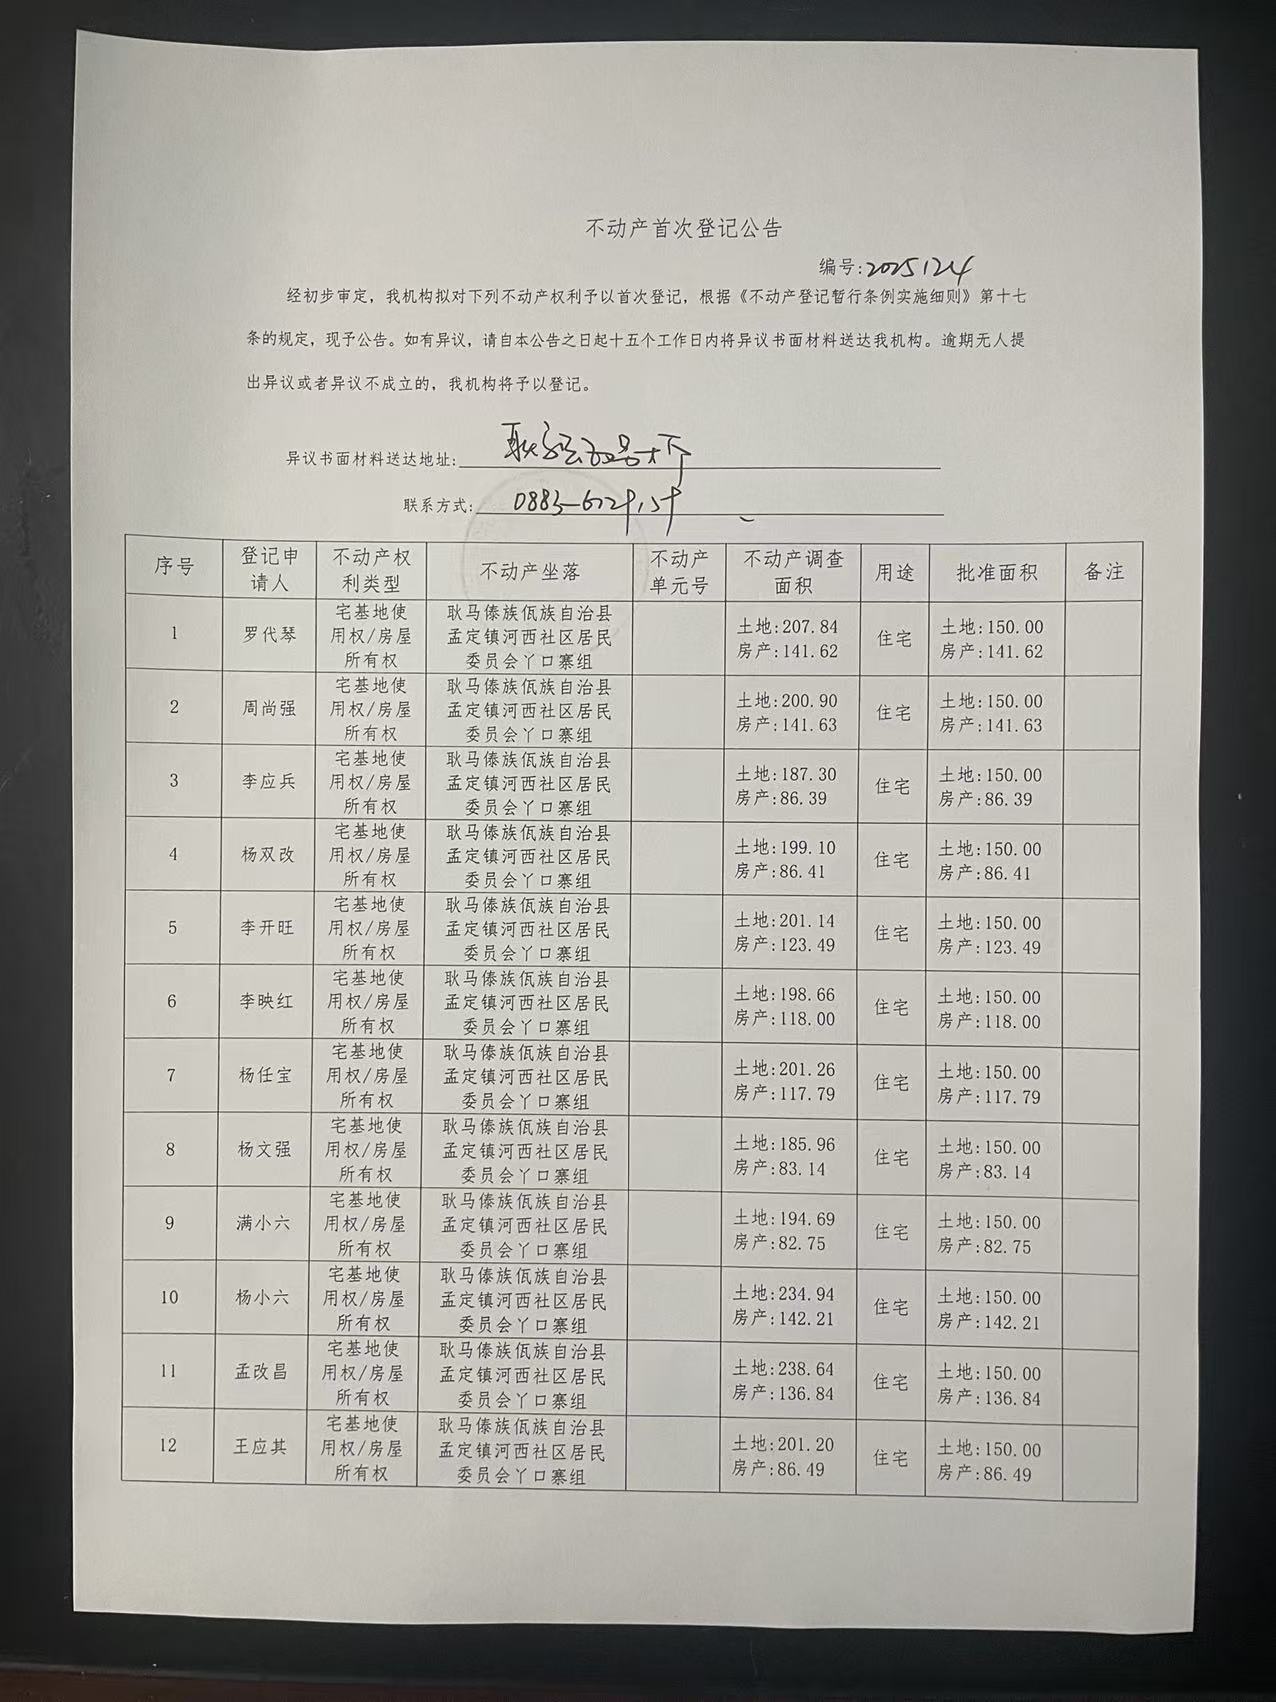 不动产首次登记公告
编号:2025124
经初步审定，我机构拟对下列不动产权利予以首次登记，根据《不动产登记暂行条例实施细则》第十七
条的规定，现予公告。如有异议，请自本公告之日起十五个工作日内将异议书面材料送达我机构。逾期无人提
出异议或者异议不成立的，我机构将予以登记。
异议书面材料送达地址:
联系方式: 0883-
序号 登记申请人 不动产权利类型 不动产坐落 不动产单元号 不动产调查面积 用途 批准面积 备注
1 罗代琴 宅基地使用权/房屋所有权 耿马傣族佤族自治县孟定镇河西社区居民委员会丫口寨组 土地:207.84 房产:141.62 住宅 土地:150.00 房产:141.62
2 周尚强 宅基地使用权/房屋所有权 耿马傣族佤族自治县孟定镇河西社区居民委员会丫口寨组 土地:200.90 房产:141.63 住宅 土地:150.00 房产:141.63
3 李应兵 宅基地使用权/房屋所有权 耿马傣族佤族自治县孟定镇河西社区居民委员会丫口寨组 土地:187.30 房产:86.39 住宅 土地:150.00 房产:86.39
4 杨双改 宅基地使用权/房屋所有权 耿马傣族佤族自治县孟定镇河西社区居民委员会丫口寨组 土地:199.10 房产:86.41 住宅 土地:150.00 房产:86.41
5 李开旺 宅基地使用权/房屋所有权 耿马傣族佤族自治县孟定镇河西社区居民委员会丫口寨组 土地:201.14 房产:123.49 住宅 土地:150.00 房产:123.49
6 李映红 宅基地使用权/房屋所有权 耿马傣族佤族自治县孟定镇河西社区居民委员会丫口寨组 土地:198.66 房产:118.00 住宅 土地:150.00 房产:118.00
7 杨任宝 宅基地使用权/房屋所有权 耿马傣族佤族自治县孟定镇河西社区居民委员会丫口寨组 土地:201.26 房产:117.79 住宅 土地:150.00 房产:117.79
8 杨文强 宅基地使用权/房屋所有权 耿马傣族佤族自治县孟定镇河西社区居民委员会丫口寨组 土地:185.96 房产:83.14 住宅 土地:150.00 房产:83.14
9 满小六 宅基地使用权/房屋所有权 耿马傣族佤族自治县孟定镇河西社区居民委员会丫口寨组 土地:194.69 房产:82.75 住宅 土地:150.00 房产:82.75
10 杨小六 宅基地使用权/房屋所有权 耿马傣族佤族自治县孟定镇河西社区居民委员会丫口寨组 土地:234.94 房产:142.21 住宅 土地:150.00 房产:142.21
11 孟改昌 宅基地使用权/房屋所有权 耿马傣族佤族自治县孟定镇河西社区居民委员会丫口寨组 土地:238.64 房产:136.84 住宅 土地:150.00 房产:136.84
12 王应其 宅基地使用权/房屋所有权 耿马傣族佤族自治县孟定镇河西社区居民委员会丫口寨组 土地:201.20 房产:86.49 住宅 土地:150.00 房产:86.49